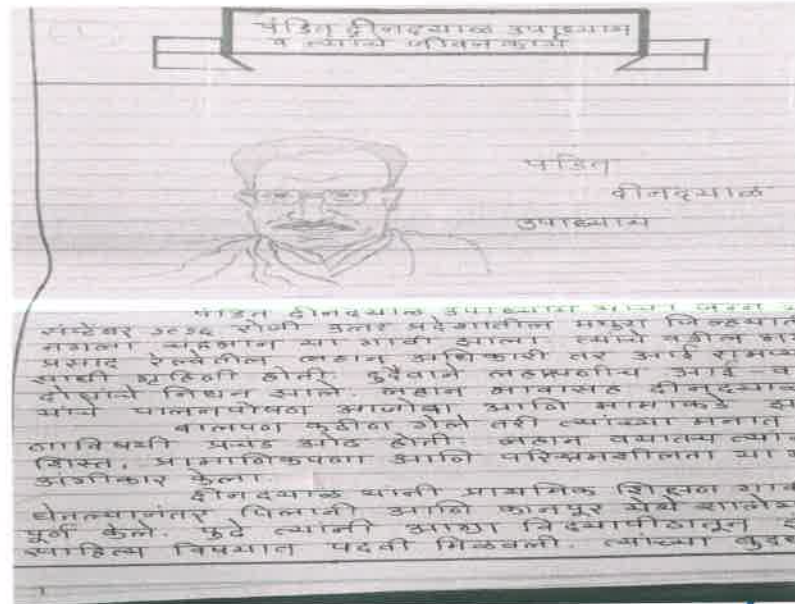 पंडित दीनदयाळ उपाध्याय
व त्यांचे जीवनकार्य
पंडित
दीनदयाळ
उपाध्याय
पंडित दीनदयाळ उपाध्याय यांचा जन्म
सप्टेंबर १९१६ रोजी उत्तर प्रदेशातील मथुरा जिल्हयाती
नगला चंद्रभान या गावी झाला त्यांचे वडील
प्रसाद रेल्वेतील लहान अधिकारी तर आई रामप्य
साधी गृहिणी होती. दुर्दैवाने लहानपणीच आई व
दोघांचे निधन झाले. लहान भावासह दीनदयाळ
यांचे पालनपोषण आजोबा आणि मामाकडे झा
बालपण कठीण गेले तरी त्यांच्या मनात
णाविषयी प्रचंड ओढ होती. लहान वयातच त्यां
शिस्त, प्रामाणिकपणा आणि परिश्रमशीलता या
अंगीकार केला.
दीनदयाळ यांनी प्राथमिक शिक्षण गाव
घेतल्यानंतर पिलानी आणि कानपूर येथे शालेय
पूर्ण केले. पुढे त्यांनी आग्रा विद्यापीठातून
साहित्य विषयात पदवी मिळवली. त्यांच्या